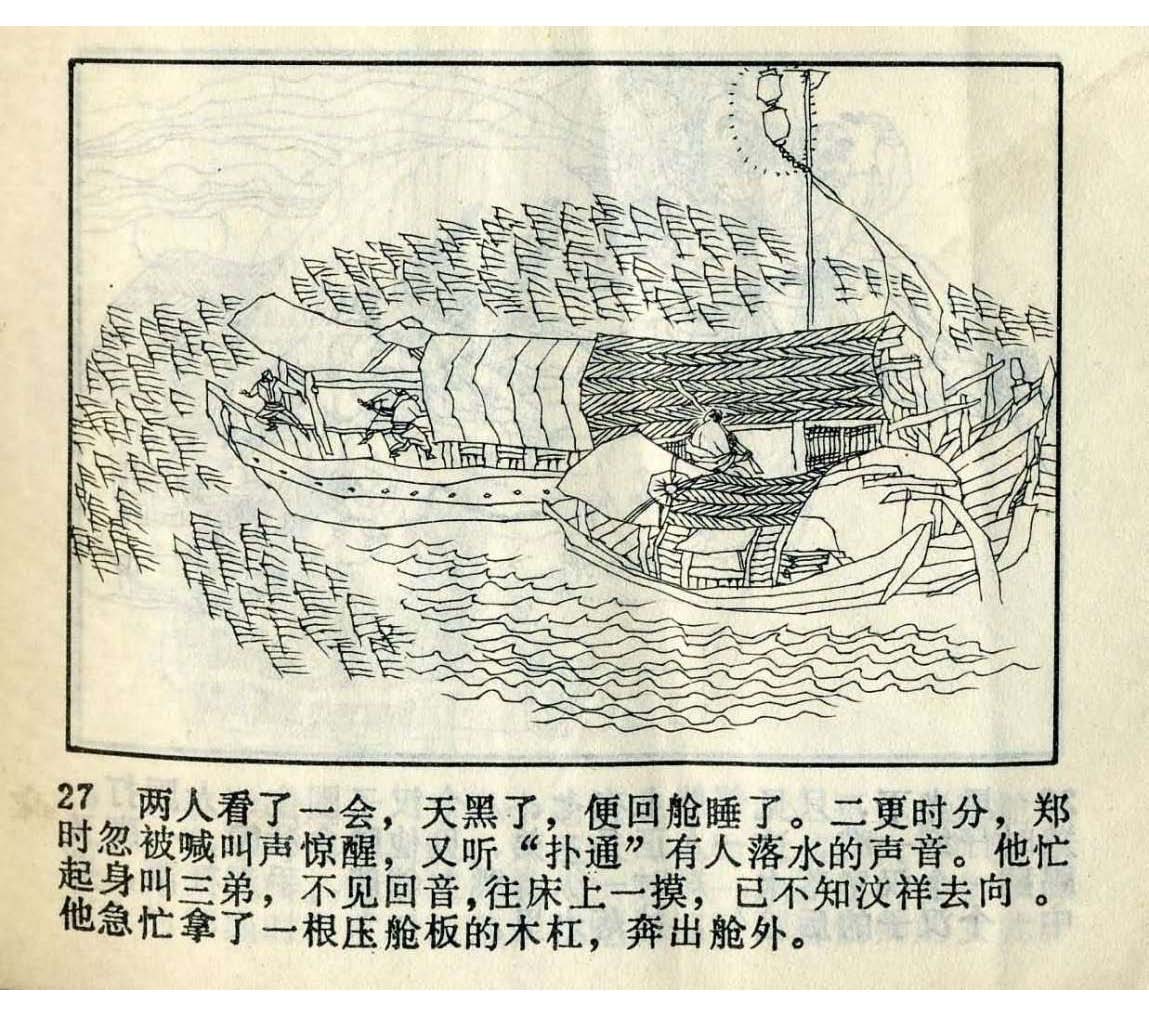 27 两人看了一会，天黑了，便回舱睡了。二更时分，郑
时忽被喊叫声惊醒，又听“扑通”有人落水的声音。他忙
起身叫三弟，不见回音，往床上一摸，已不知汶祥去向。
他急忙拿了一根压舱板的木杠，奔出舱外。